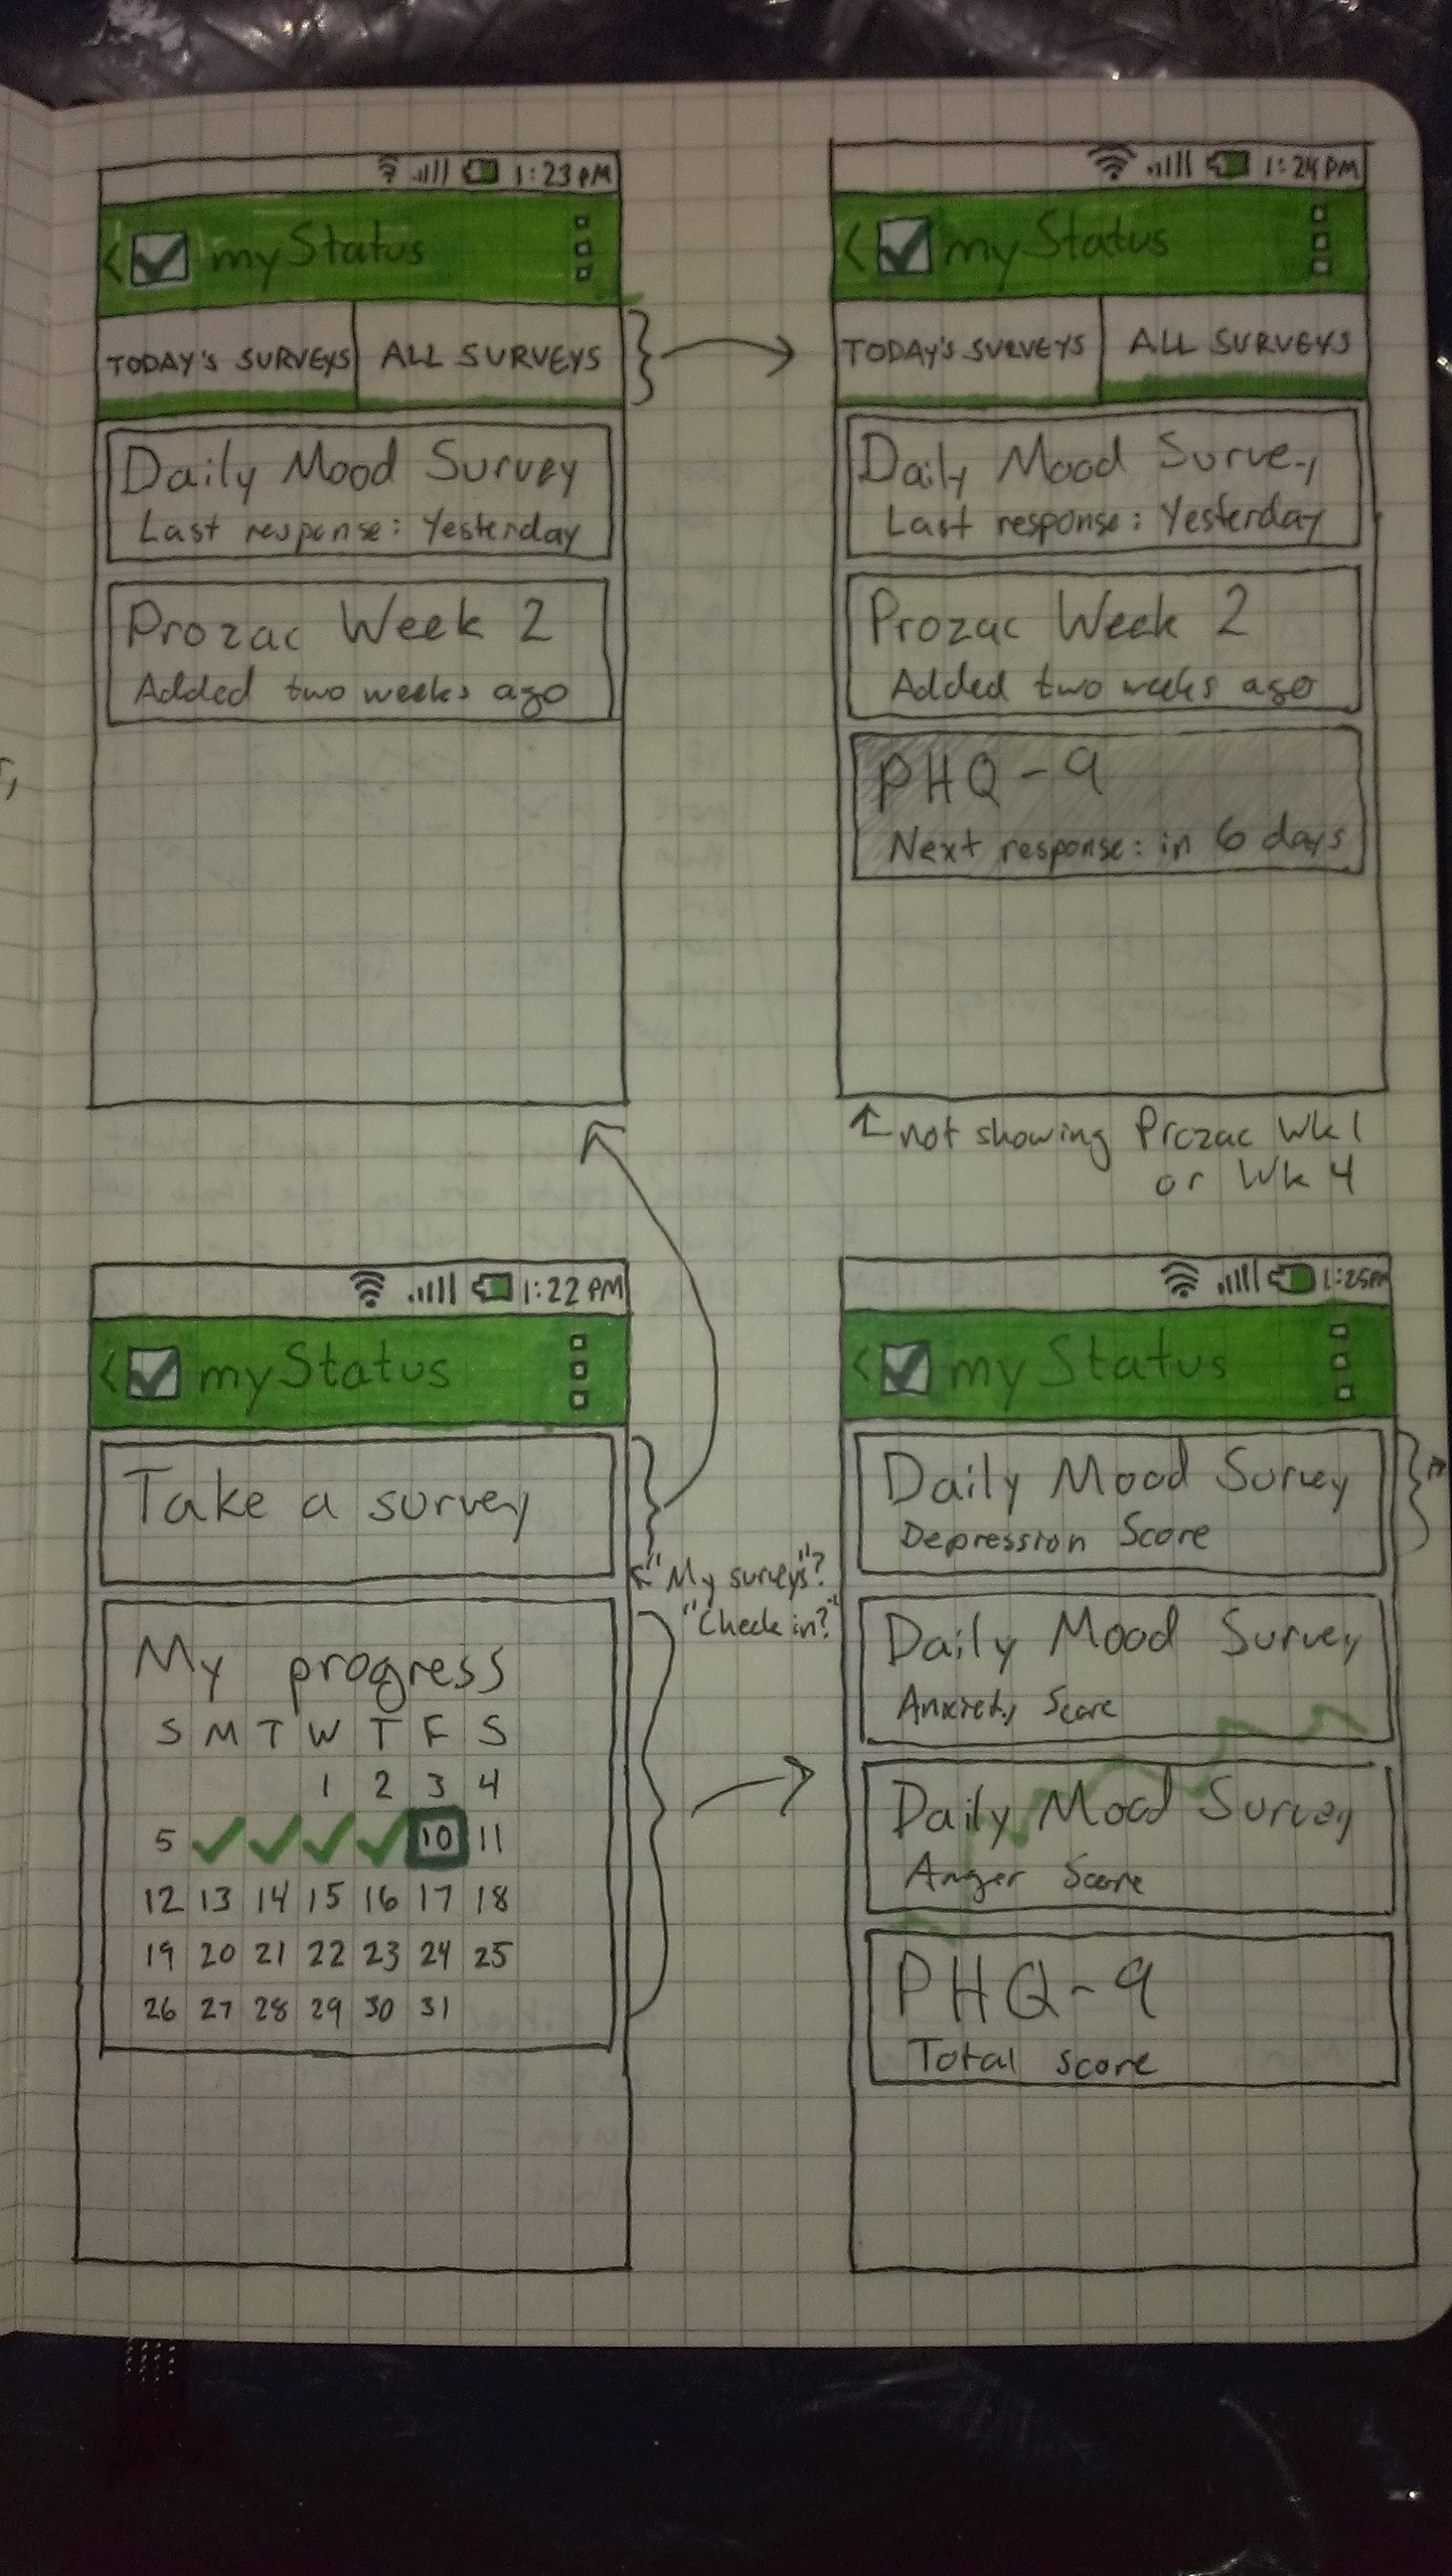 1:23 PM
< myStatus
TODAY'S SURVEYS
ALL SURVEYS
Daily Mood Survey
Last response: Yesterday
Prozac Week 2
Added two weeks ago
1:24 PM
< myStatus
TODAY'S SURVEYS
ALL SURVEYS
Daily Mood Survey
Last response: Yesterday
Prozac Week 2
Added two weeks ago
PHQ-9
Next response: in 6 days
not showing Prozac Wk 1
or Wk 4
1:22 PM
< myStatus
Take a survey
"My surveys"?
"Check in?"
My progress
S M T W T F S
1 2 3 4
5 10 11
12 13 14 15 16 17 18
19 20 21 22 23 24 25
26 27 28 29 30 31
1:25PM
< myStatus
Daily Mood Survey
Depression Score
Daily Mood Survey
Anxiety Score
Daily Mood Survey
Anger Score
PHQ-9
Total score